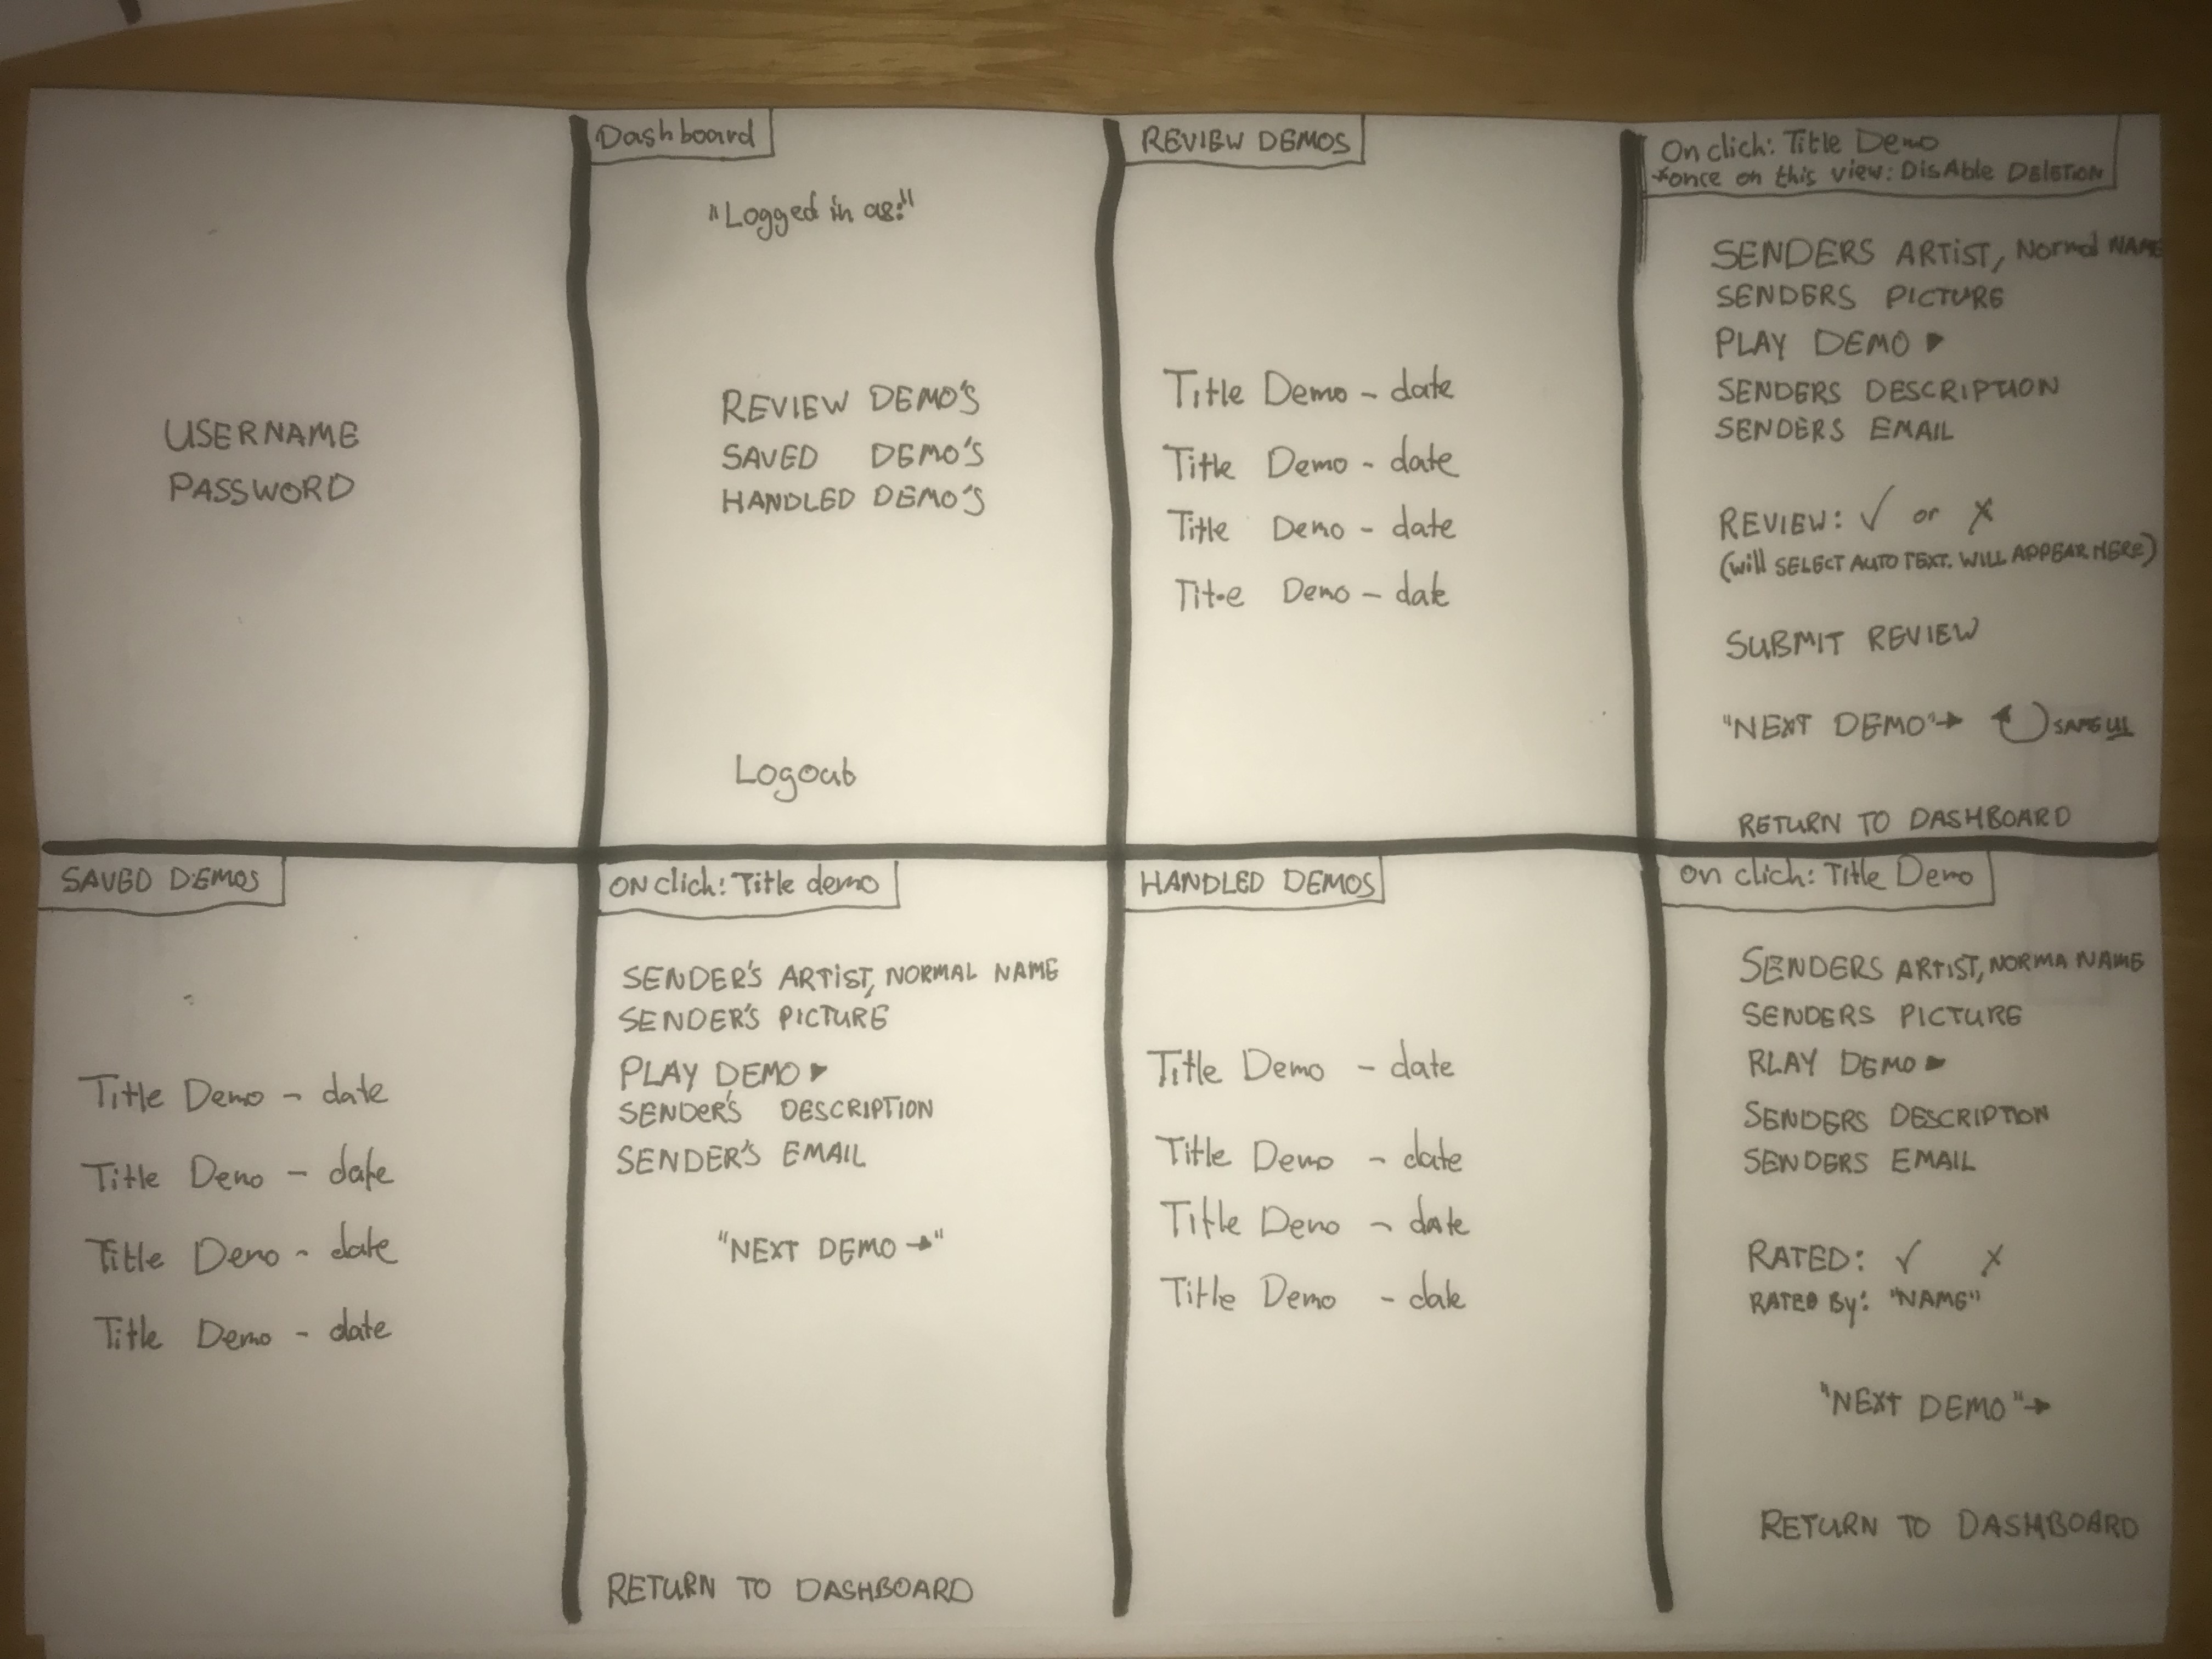 USERNAME
PASSWORD
Dashboard
"Logged in as:"
REVIEW DEMO'S
SAVED DEMO'S
HANDLED DEMO'S
Logout
REVIEW DEMOS
Title Demo - date
Title Demo - date
Title Demo - date
Title Demo - date
On click: Title Demo
*once on this view: DisAble DELETION
SENDERS ARTIST, Normal NAME
SENDERS PICTURE
PLAY DEMO ▶
SENDERS DESCRIPTION
SENDERS EMAIL
REVIEW: ✓ or ✗
(will SELECT AUTO TEXT. WILL APPEAR HERE)
SUBMIT REVIEW
"NEXT DEMO"→ SAME UI
RETURN TO DASHBOARD
SAVED DEMOS
Title Demo - date
Title Demo - date
Title Demo - date
Title Demo - date
ON click: Title demo
SENDER'S ARTIST, NORMAL NAME
SENDER'S PICTURE
PLAY DEMO ▶
SENDER'S DESCRIPTION
SENDER'S EMAIL
"NEXT DEMO →"
RETURN TO DASHBOARD
HANDLED DEMOS
Title Demo - date
Title Demo - date
Title Demo - date
Title Demo - date
on click: Title Demo
SENDERS ARTIST, NORMA NAME
SENDERS PICTURE
PLAY DEMO ▶
SENDERS DESCRIPTION
SENDERS EMAIL
RATED: ✓ ✗
RATED By: "NAME"
"NEXT DEMO"→
RETURN TO DASHBOARD